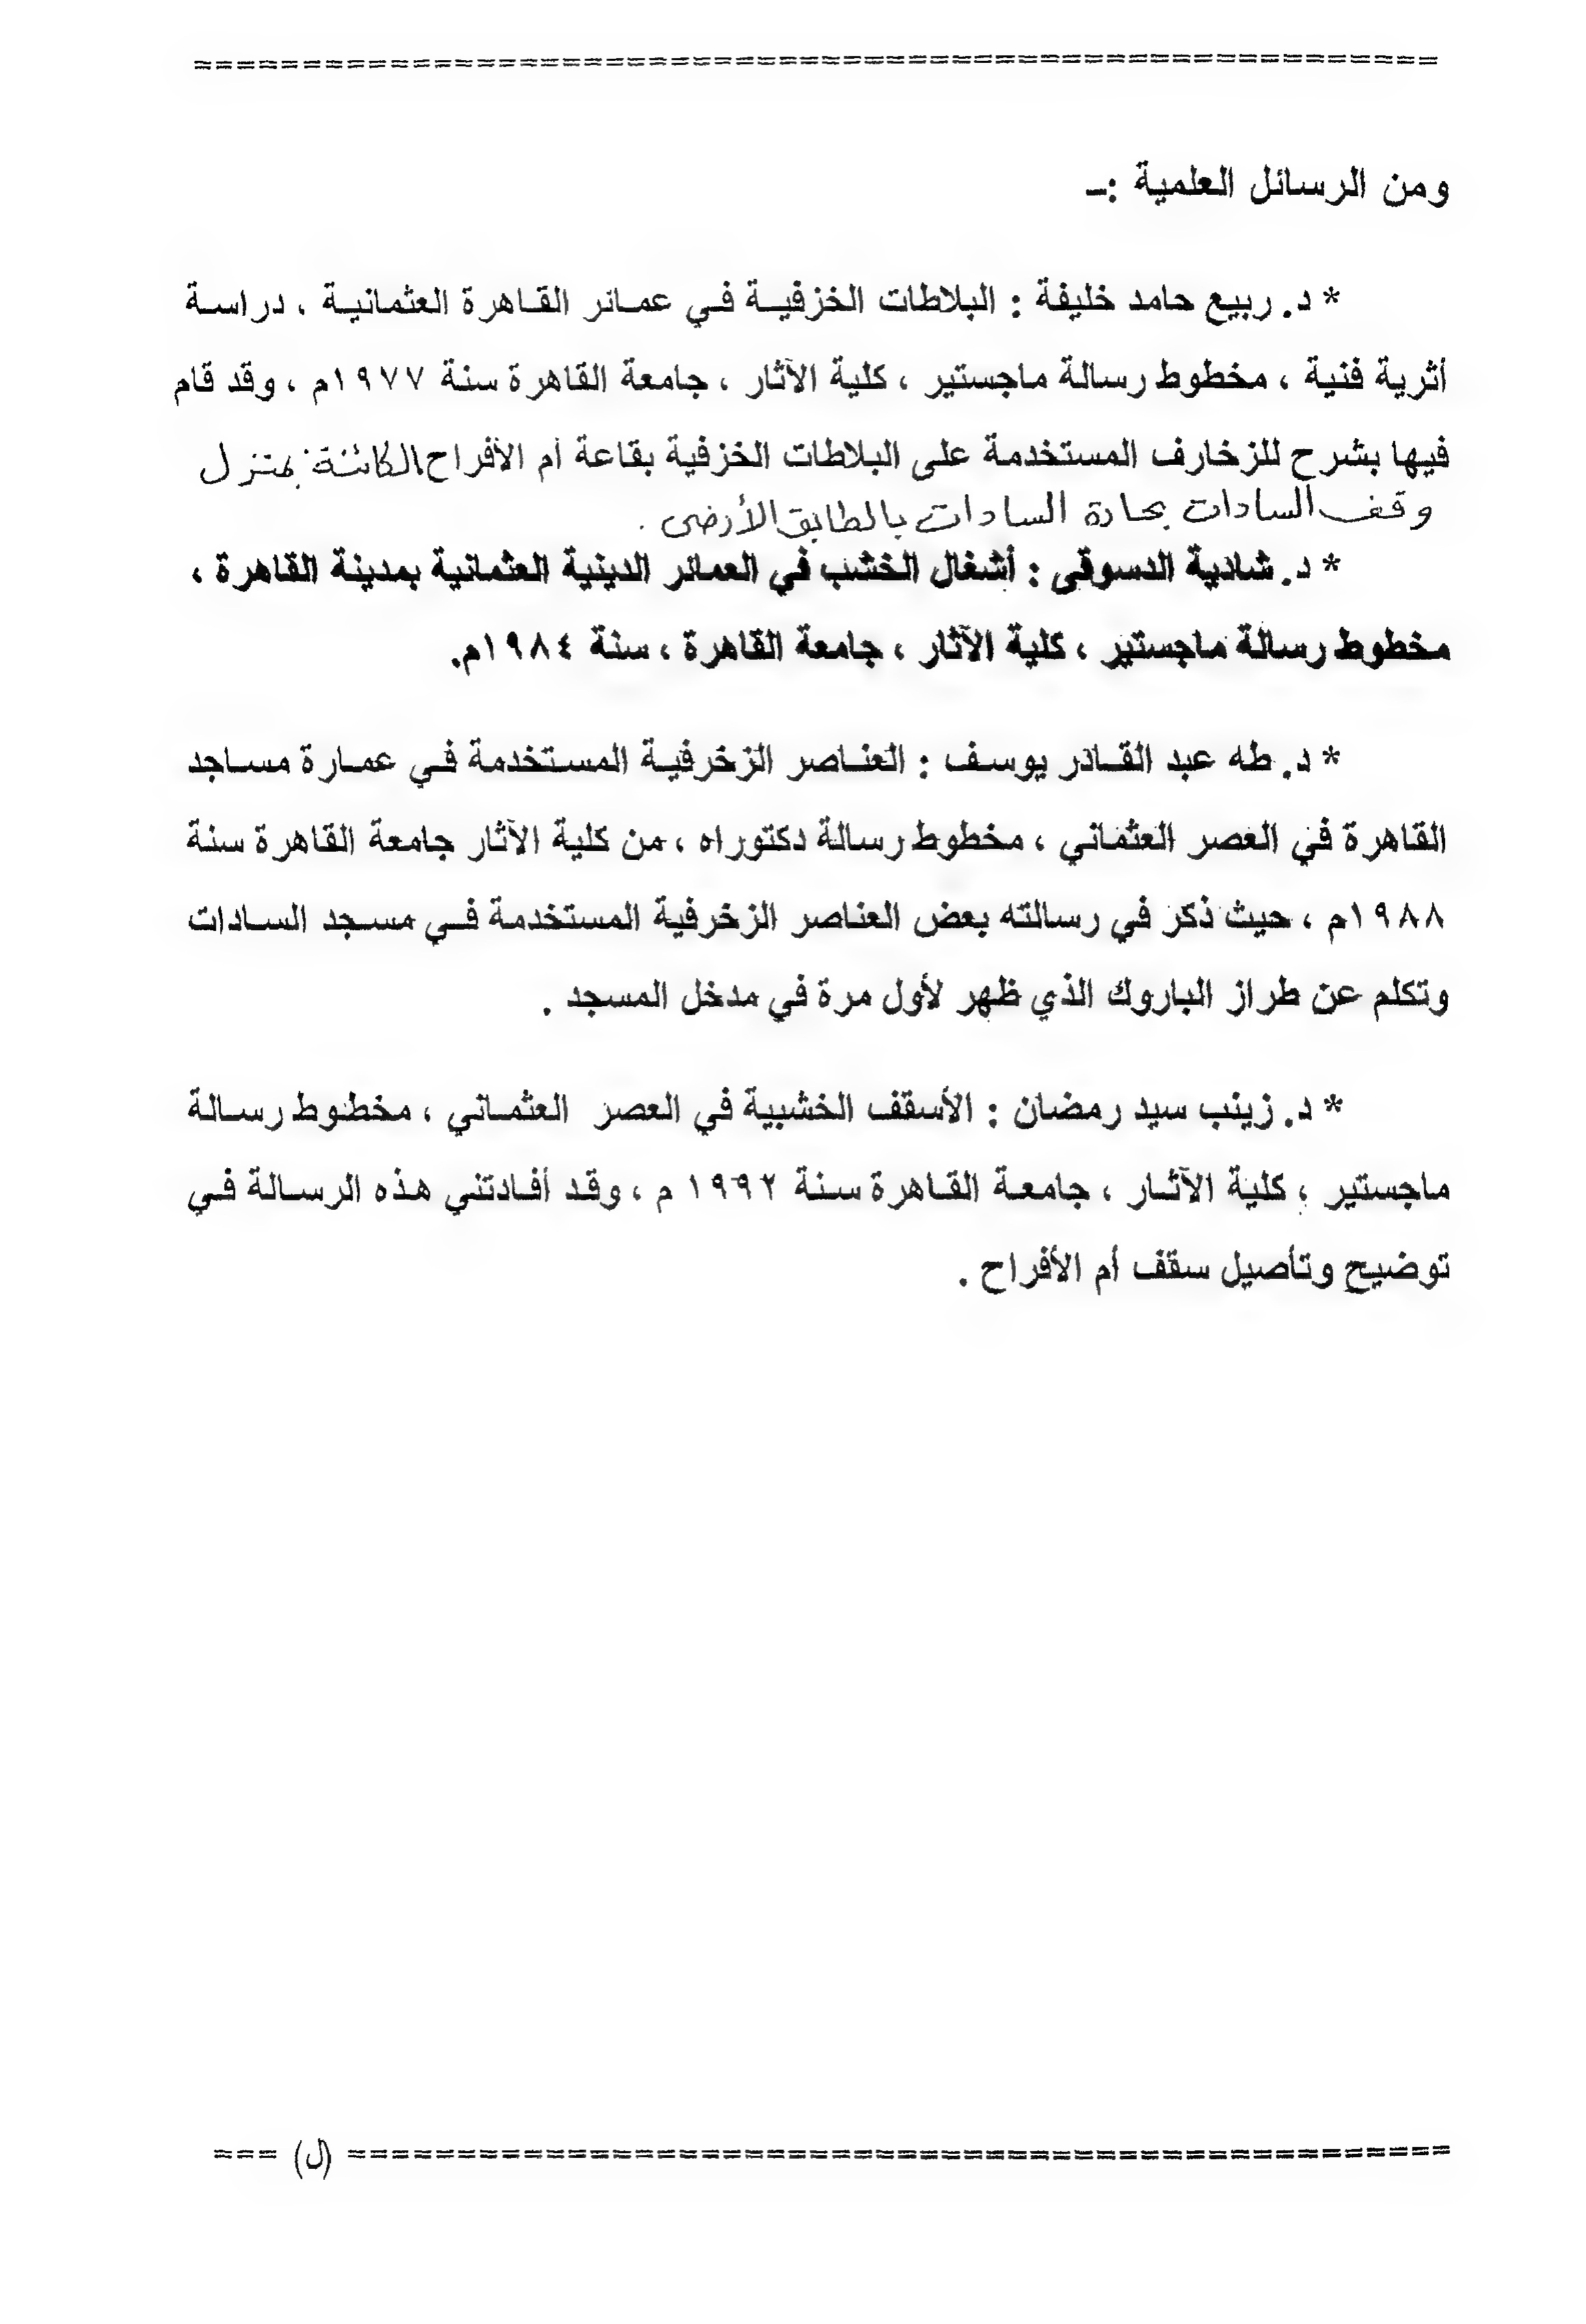 ومن الرسائل العلمية :ـ
* د. ربيع حامد خليفة : البلاطات الخزفية في عمائر القاهرة العثمانية ، دراسة
أثرية فنية ، مخطوط رسالة ماجستير ، كلية الآثار ، جامعة القاهرة سنة ١٩٧٧م ، وقد قام
فيها بشرح للزخارف المستخدمة على البلاطات الخزفية بقاعة أم الأفراح الكائنة بمنزل
وقف السادات بحارة السادات بالطابق الأرضى .
* د. شادية الدسوقى : أشغال الخشب في العمائر الدينية العثمانية بمدينة القاهرة ،
مخطوط رسالة ماجستير ، كلية الآثار ، جامعة القاهرة ، سنة ١٩٨٤م.
* د. طه عبد القادر يوسف : العناصر الزخرفية المستخدمة في عمارة مساجد
القاهرة في العصر العثماني ، مخطوط رسالة دكتوراه ، من كلية الآثار جامعة القاهرة سنة
١٩٨٨م ، حيث ذكر في رسالته بعض العناصر الزخرفية المستخدمة في مسجد السادات
وتكلم عن طراز الباروك الذي ظهر لأول مرة في مدخل المسجد .
* د. زينب سيد رمضان : الأسقف الخشبية في العصر العثماني ، مخطوط رسالة
ماجستير ، كلية الآثار ، جامعة القاهرة سنة ١٩٩٢ م ، وقد أفادتني هذه الرسالة في
توضيح وتأصيل سقف أم الأفراح .
(ل)